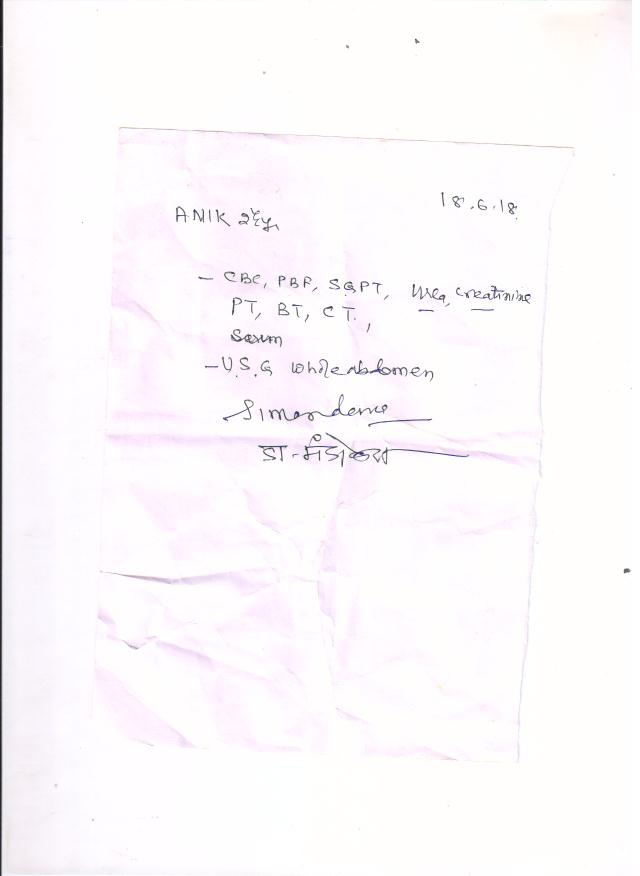 18.6.18
ANIK
- CBC, PBF, SGPT, Urea, creatinine
PT, BT, CT.,
Serum
- U.S.G whole abdomen
डा-